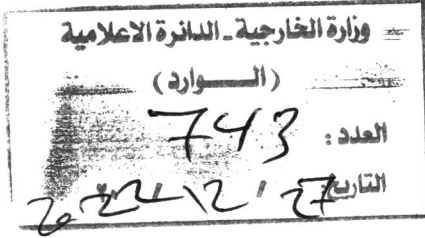 وزارة الخارجية - الدائرة الاعلامية
(الـــوارد)
العدد : 743
التاريخ 27 / 12 / 2022